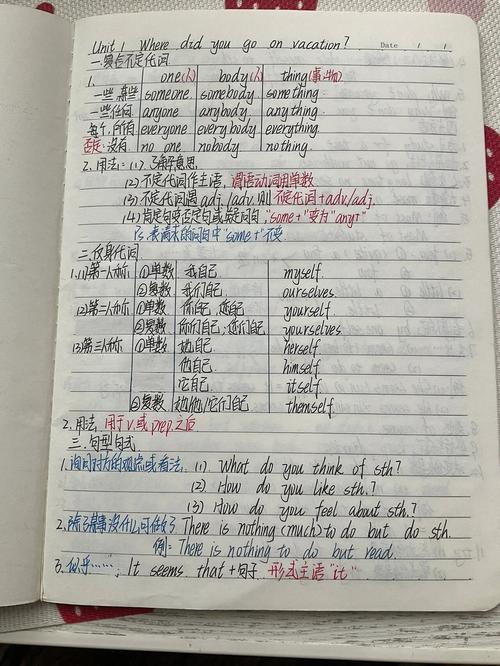 Unit 1 Where did you go on vacation? Date / /
一.复合不定代词
1. one(人) body(人) thing(事,物)
一些,某些 someone somebody something
一些,任何 anyone anybody anything.
每个,所有 everyone everybody everything.
否定,没有 no one nobody nothing.
2.用法:(1)了解意思
(2)不定代词作主语,谓语动词用单数
(3)不定代词遇adj./adv.则 不定代词+adv/adj.
(4)肯定句变否定句或疑问句"some+"变为"any+"
表 的问句中"some+"不变
二.反身代词
1.(1)第一人称 ①单数 我自己 myself.
②复数 我们自己 ourselves
(2)第二人称 ①单数 你自己,您自己 yourself.
②复数 你们自己,您们自己 yourselves
(3)第三人称 ①单数 她自己 herself.
他自己 himself.
它自己 itself
②复数 她/他/它们自己 themself.
2.用法,用于v.或prep.之后
三.句型句式
1.询问对方的观点或看法. (1) What do you think of sth?
(2) How do you like sth.?
(3) How do you feel about sth.?
2.除了某事没什么可做了 There is nothing (much) to do but do sth.
例: There is nothing to do but read.
3.似乎……; It seems that +句子 形式主语"it"